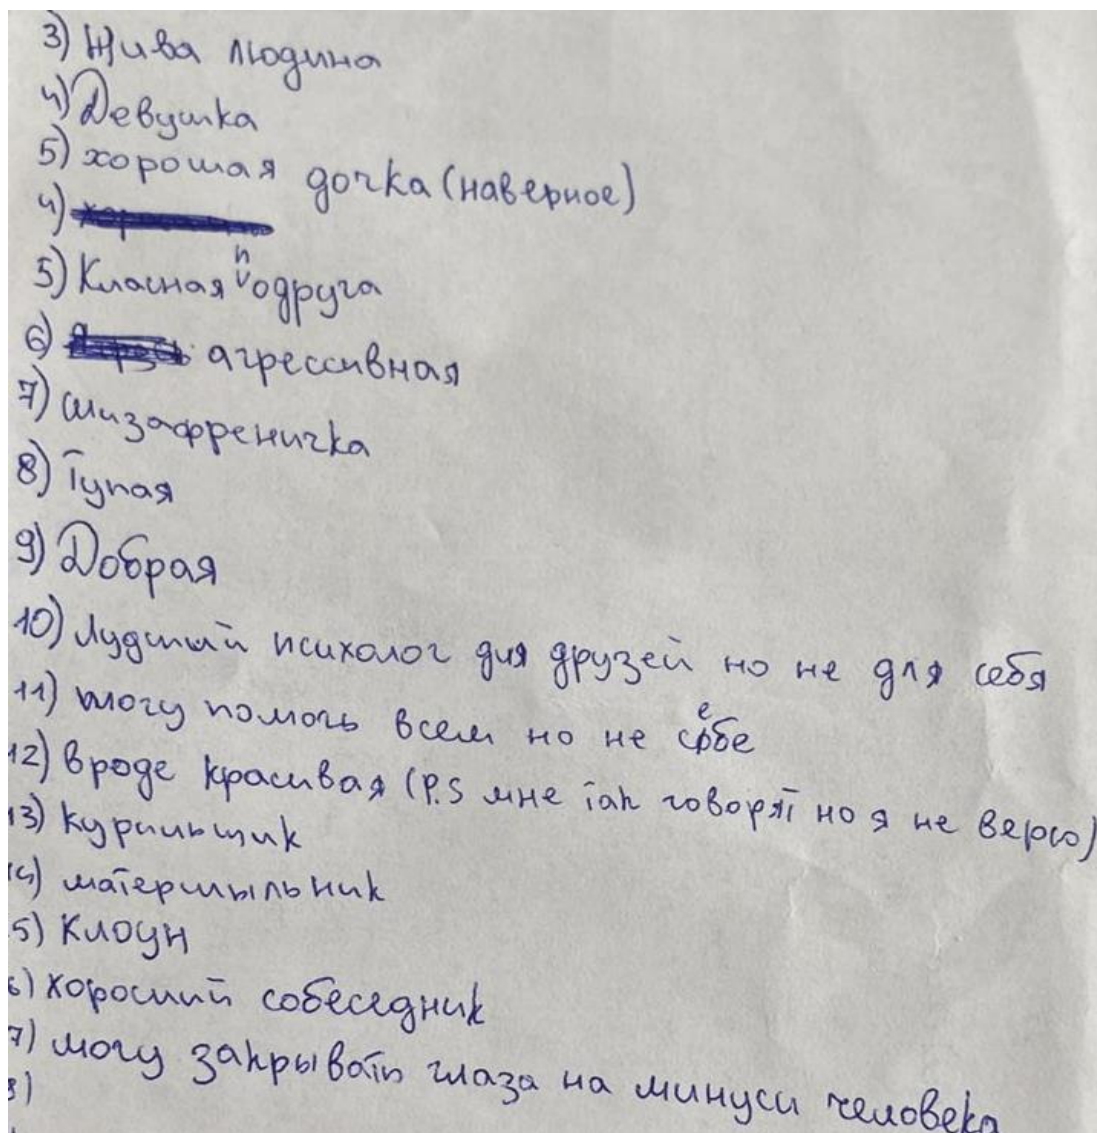 3) Жива людина
4) Девушка
5) хорошая дочка (наверное)
4)
5) Класная подруга
6) агрессивная
7) шизафреничка
8) Тупая
9) Добрая
10) Лудший психолог для друзей но не для себя
11) могу помочь всем но не себе
12) вроде красивая (P.S мне так говорят но я не верю)
13) курильщик
14) матершыльник
5) Клоун
6) хороший собеседник
7) могу закрывать глаза на минуси человека
8)